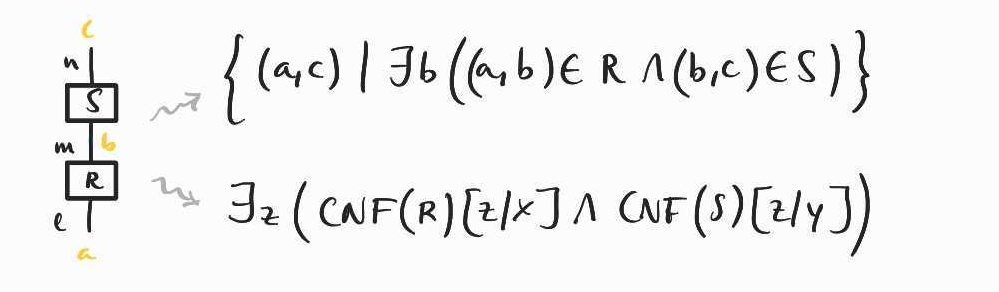 c
n
S
m b
R
l
a
{(a,c) | ∃b((a,b)∈ R ∧(b,c)∈S)}
∃z(CNF(R)[z/x]∧ CNF(S)[z/y])